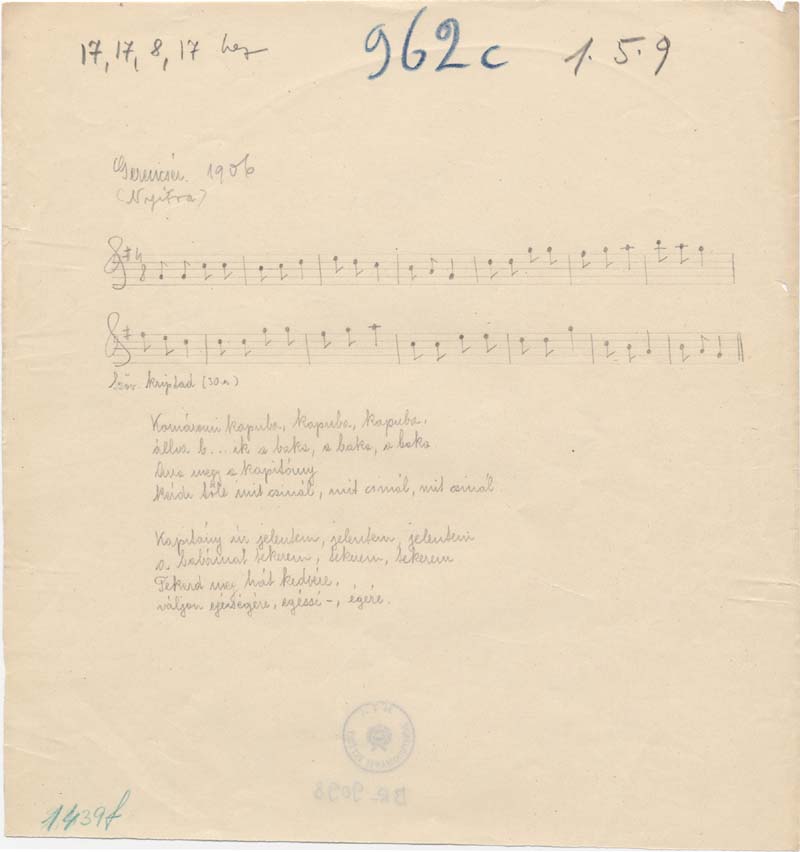 17, 17, 8, 17
962c
1. 5. 9
Gerencsér. 1906
(Nyitra)
kriptad (30. )
Komáromi kapuba, kapuba, kapuba,
állva b... ik a baka, a baka, a baka
Arra megy a kapitány
kérdi tőle mit csinál, mit csinál, mit csinál.
Kapitány úr jelentem, jelentem, jelentem
a babámat tekerem, tekerem, tekerem
Tekerd meg hát kedvére,
váljon egészségére, egéssé-, égére.
BR_9098
1.439f